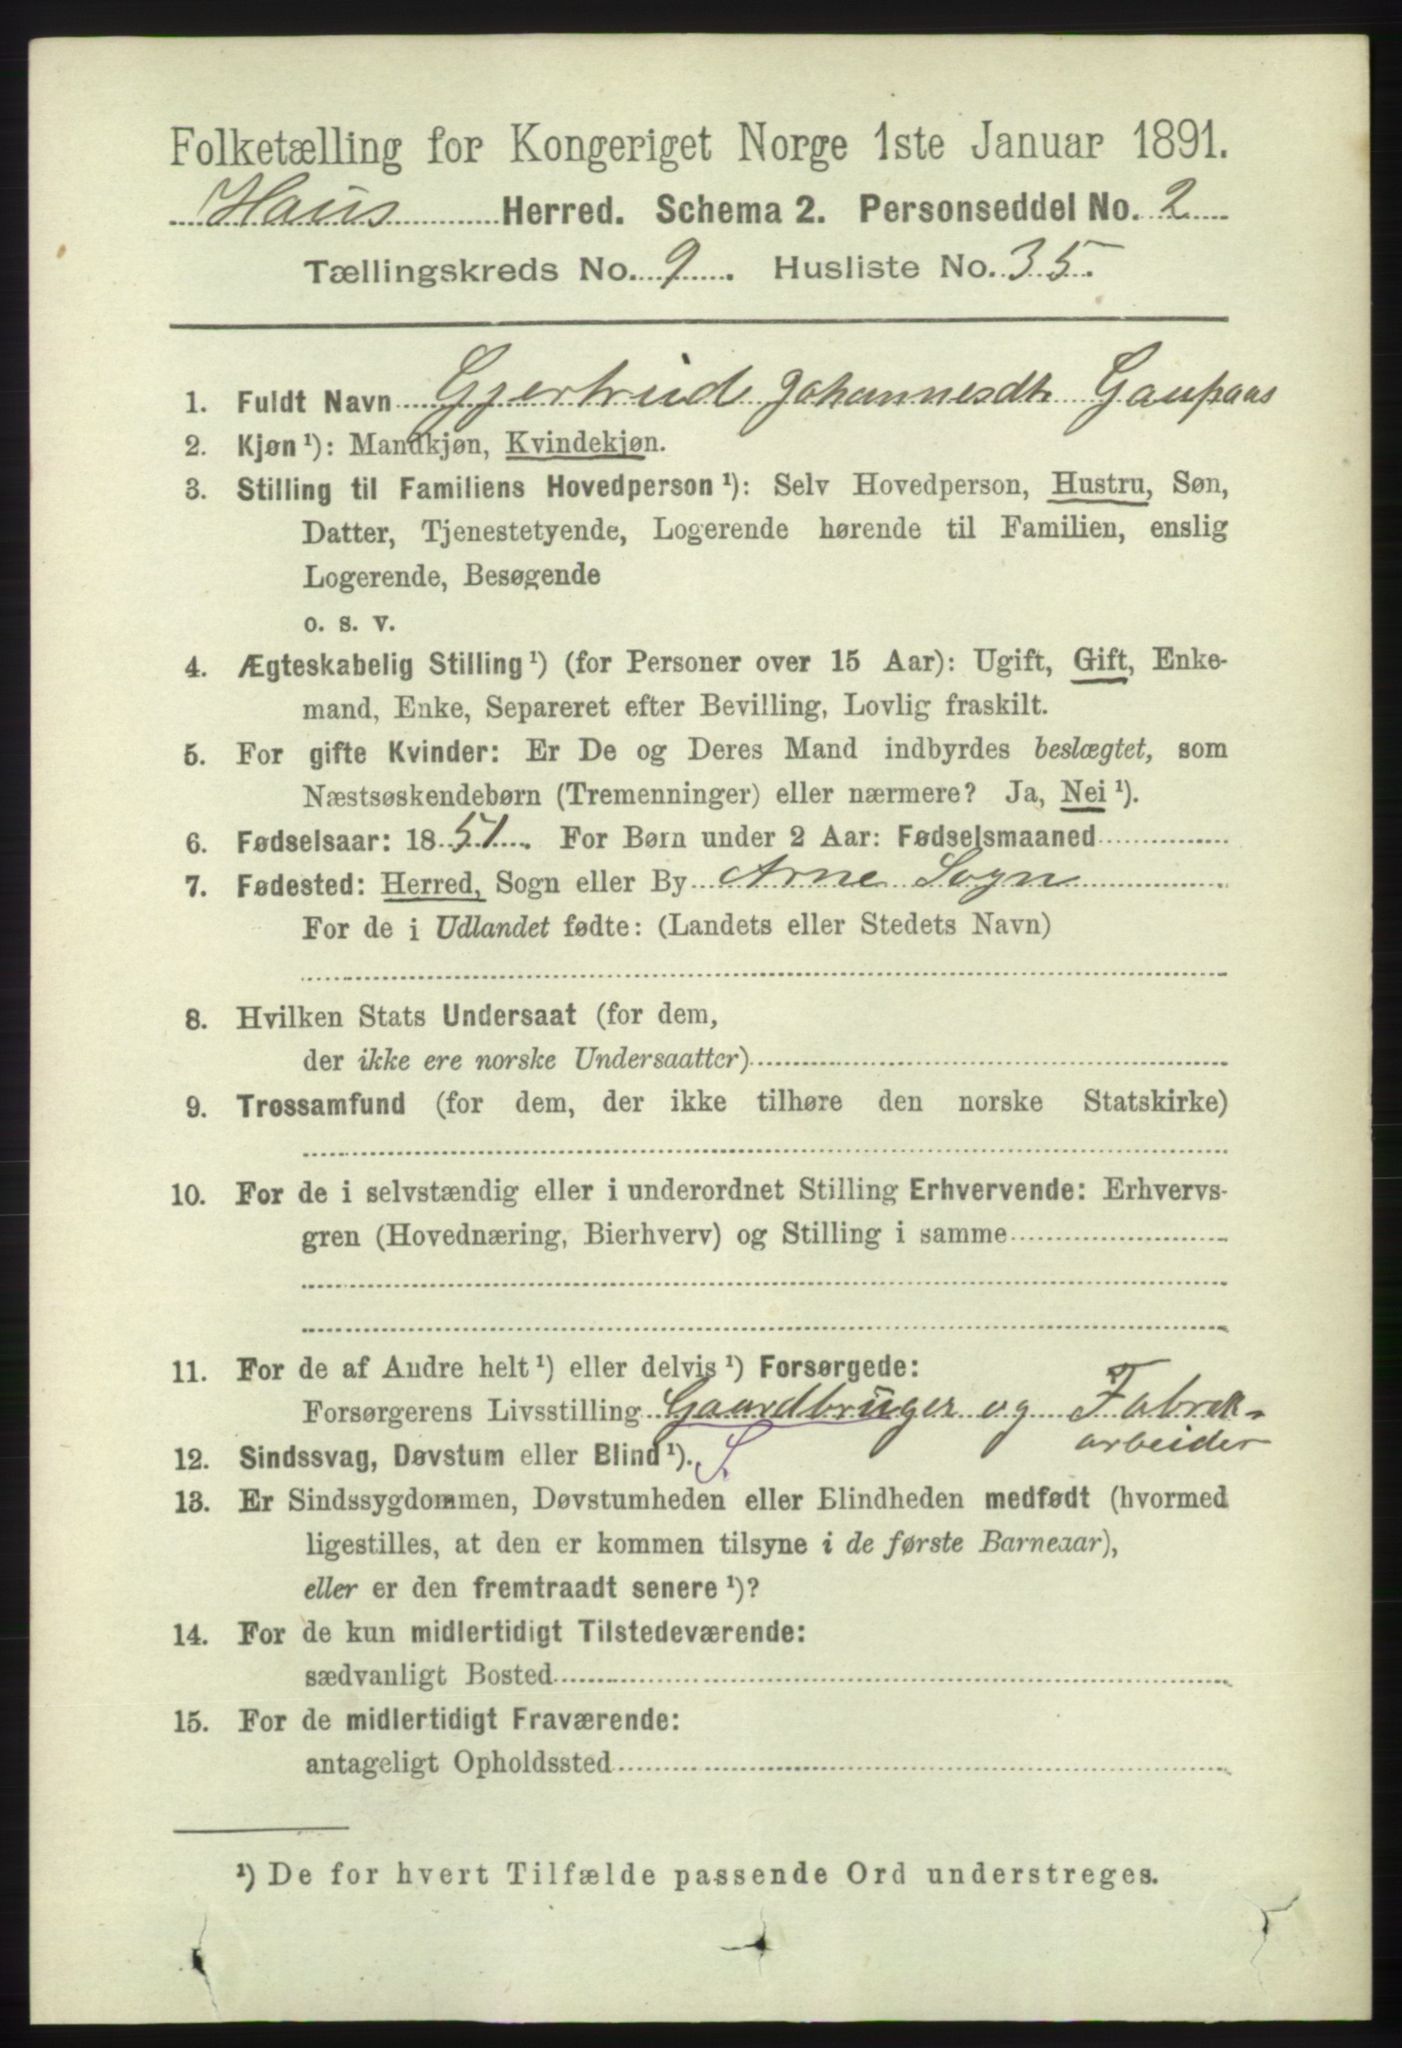 Folketælling for Kongeriget Norge 1ste Januar 1891.
Haus Herred. Schema 2. Personseddel No. 2
Tællingskreds No. 9. Husliste No. 35.
1. Fuldt Navn Gjertrud Johannesdtr Gaupaas
2. Kjøn¹): Mandkjøn, Kvindekjøn.
3. Stilling til Familiens Hovedperson¹): Selv Hovedperson, Hustru, Søn,
Datter, Tjenestetyende, Logerende hørende til Familien, enslig
Logerende, Besøgende
o. s. v.
4. Ægteskabelig Stilling¹) (for Personer over 15 Aar): Ugift, Gift, Enke-
mand, Enke, Separeret efter Bevilling, Lovlig fraskilt.
5. For gifte Kvinder: Er De og Deres Mand indbyrdes beslægtet, som
Næstsøskendebørn (Tremenninger) eller nærmere? Ja, Nei¹).
6. Fødselsaar: 1851. For Børn under 2 Aar: Fødselsmaaned
7. Fødested: Herred, Sogn eller By Arne Sogn
For de i Udlandet fødte: (Landets eller Stedets Navn)
8. Hvilken Stats Undersaat (for dem,
der ikke ere norske Undersaatter)
9. Trossamfund (for dem, der ikke tilhøre den norske Statskirke)
10. For de i selvstændig eller i underordnet Stilling Erhvervende: Erhvervs-
gren (Hovednæring, Bierhverv) og Stilling i samme
11. For de af Andre helt¹) eller delvis¹) Forsørgede:
Forsørgerens Livsstilling Gaardbruger og Fabrik-
arbeider
12. Sindssvag, Døvstum eller Blind¹). S.
13. Er Sindssygdommen, Døvstumheden eller Blindheden medfødt (hvormed
ligestilles, at den er kommen tilsyne i de første Barneaar),
eller er den fremtraadt senere¹)?
14. For de kun midlertidigt Tilstedeværende:
sædvanligt Bosted
15. For de midlertidigt Fraværende:
antageligt Opholdssted
¹) De for hvert Tilfælde passende Ord understreges.